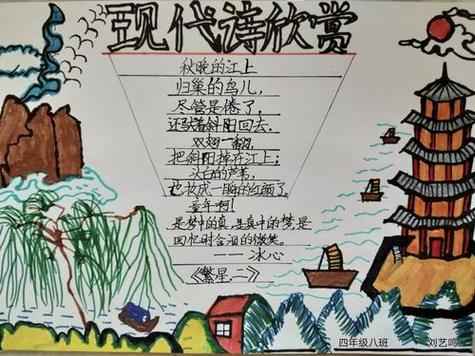 现代诗欣赏
秋晚的江上
归巢的鸟儿，
尽管是倦了，
还驮着斜阳回去。
双翅一翻，
把斜阳掉在江上；
头白的芦苇，
也妆成一瞬的红颜了。
童年啊！
是梦中的真，是真中的梦，是
回忆时含泪的微笑。
——冰心
《繁星.二》
四年级八班
刘艺鸣